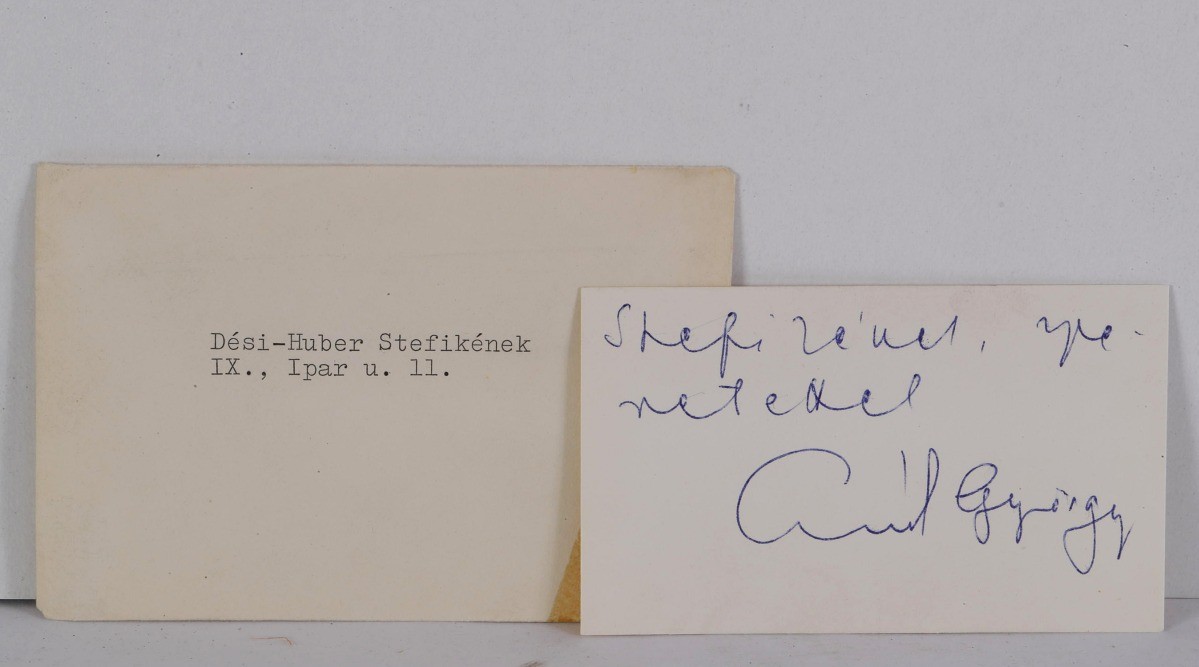 Dési-Huber Stefikének
IX., Ipar u. 11.
Stefikének, sze-
retettel
Aczél György